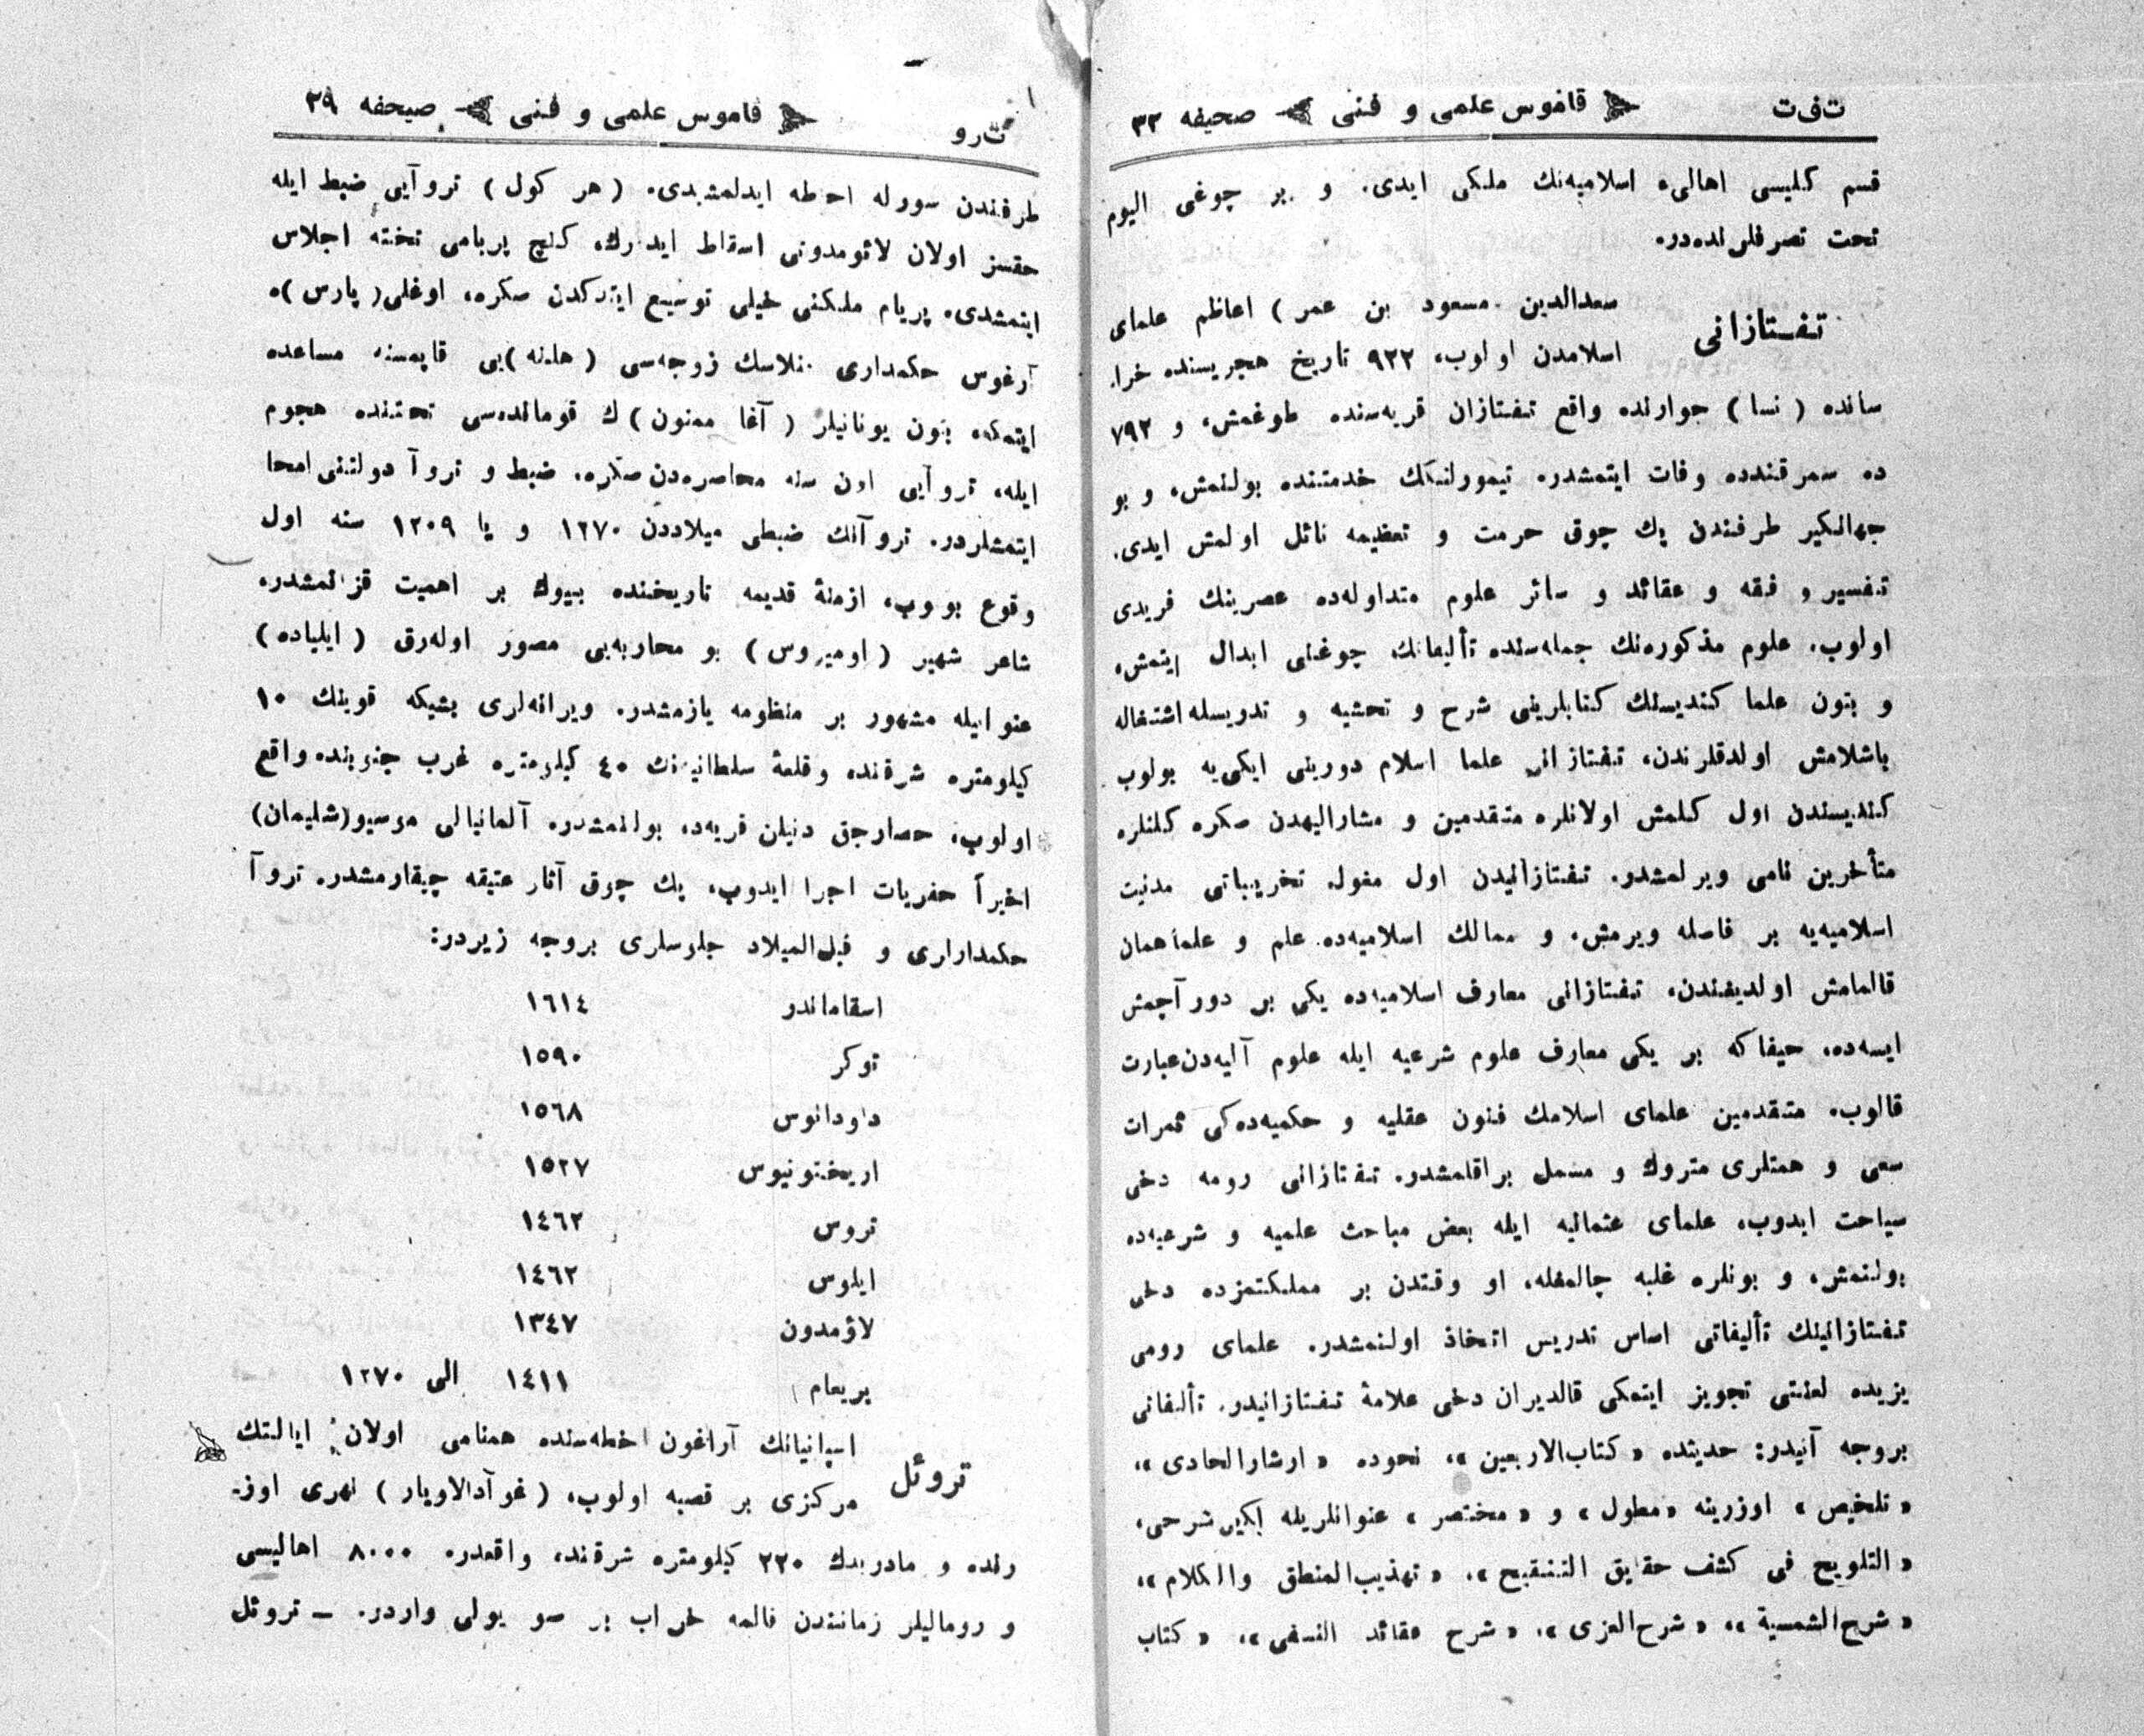 ت‌ف‌ت قاموس علمی و فنی صحیفه ٣٢
قسم کلیسی اهالیء اسلامیه‌نك ملکی ایدی. و بر چوغی الیوم
تحت تصرفلرنده‌در.
تفتازانی سعدالدین مسعود بن عمر) اعاظم علمای
اسلامدن اولوب، ٩٢٢ تاریخ هجریسنده خرا.
سانده (نسا) جوارنده واقع تفتازان قریه‌سنده طوغمش، و ٧٩٢
ده سمرقندده وفات ایتمشدر. تیمورلنکك خدمتنده بولنمش، و بو
جهانکیر طرفندن پك چوق حرمت و تعظیمه نائل اولمش ایدی.
تفسیر و فقه و عقائد و سائر علوم متداوله‌ده عصرینك فریدی
اولوب، علوم مذکوره‌نك جمله‌سنده تألیفاتك چوغنی ابدال ایتمش،
و بتون علما کندیسنك کتابلرینی شرح و تحشیه و تدریسله اشتغاله
باشلامش اولدقلرندن، تفتازانی علما اسلام دورینی ایکی‌یه بولوب
کندیسندن اول کلمش اولانلره متقدمین و مشارالیهدن صکره کلنلره
متأخرین نامی ویرلمشدر. تفتازانیدن اول مغول تخریباتی مدنیت
اسلامیه‌یه بر فاصله ویرمش، و ممالك اسلامیه‌ده علم و علما همان
قالمامش اولدیغندن، تفتازانی معارف اسلامیه‌ده یکی بر دور آچمش
ایسه‌ده، حیفا که بر یکی معارف علوم شرعیه ایله علوم آلیه‌دن عبارت
قالوب، متقدمین علمای اسلامك فنون عقلیه و حکمیه‌ده‌کی ثمرات
سعی و همتلری متروك و مهمل براقلمشدر. تفتازانی رومه دخی
سیاحت ایدوب، علمای عثمانیه ایله بعض مباحث علمیه و شرعیه‌ده
بولنمش، و بونلره غلبه چالمغله، او وقتدن بر مملکتمزده دخی
تفتازانینك تألیفاتی اساس تدریس اتخاذ اولنمشدر. علمای رومی
یزیده لعنتی تجویز ایتمکی قالدیران دخی علامهٔ تفتازانیدر. تألیفاتی
بروجه آتیدر: حدیثده «کتاب‌الاربعین»، نحوده «ارشارالحادی»،
«تلخیص» اوزرینه «مطول» و «مختصر» عنوانلریله ایکی شرحی،
«التلویح فی کشف حقایق التنقیح»، «تهذیب‌المنطق والکلام»،
«شرح‌الشمسیة»، «شرح‌العزی»، «شرح عقائد النسفی»، «کتاب
ت‌رو قاموس علمی و فنی صحیفه ٢٩
طرفندن سورله احاطه ایدلمشیدی. (هرکول) تروآیی ضبط ایله
حقسز اولان لائومدونی اسقاط ایدرك، کنج پریامی تخته اجلاس
ایتمشدی. پریام ملکنی خیلی توسیع ایتدکدن صکره، اوغلی (پارس)ه
آرغوس حکمداری منلاسك زوجه‌سی (هلنه)یی قاپمسنه مساعده
ایتمکه، بتون یونانیلر (آغا ممنون)ك قوماندەسی تحتنده هجوم
ایله، تروآیی اون سنه محاصره‌دن صکره، ضبط و تروآ دولتنی امحا
ایتمشلردر. تروآنك ضبطی میلاددن ١٢٧٠ و یا ١٢٠٩ سنه اول
وقوع بولوب، ازمنهٔ قدیمه تاریخنده بیوك بر اهمیت قزانمشدر.
شاعر شهیر (اومیروس) بو محاربه‌یی مصور اوله‌رق (ایلیاده)
عنوانیله مشهور بر منظومه یازمشدر. ویرانه‌لری بشیکه قوینك ١٠
کیلومتره شرقنده و قلعهٔ سلطانیه‌نك ٤٠ کیلومتره غرب جنوبنده واقع
اولوب، حصارجق دنیلن قریه‌ده بولنمشدر. آلمانیالی موسیو (شلیمان)
اخیراً حفریات اجرا ایدوب، پك چوق آثار عتیقه چیقارمشدر. تروآ
حکمدارلری و قبل‌المیلاد جلوسلری بروجه زیردر:
اسقاماندر ١٦١٤
توکر ١٥٩٠
داودانوس ١٥٦٨
اریختونیوس ١٥٢٧
تروس ١٤٦٢
ایلوس ١٤٦٢
لاؤمدون ١٣٤٧
بریعام ١٤١١ الی ١٢٧٠
تروئل اسپانیانك آراغون خطه‌سنده همنامی اولان ایالتك
مرکزی بر قصبه اولوب، (غوآدالاویار) نهری اوز-
رنده و مادریدك ٢٢٠ کیلومتره شرقنده واقعدر. ٨٠٠٠ اهالیسی
و رومالیلر زمانندن قالمه خراب بر صو یولی واردر. — تروئل